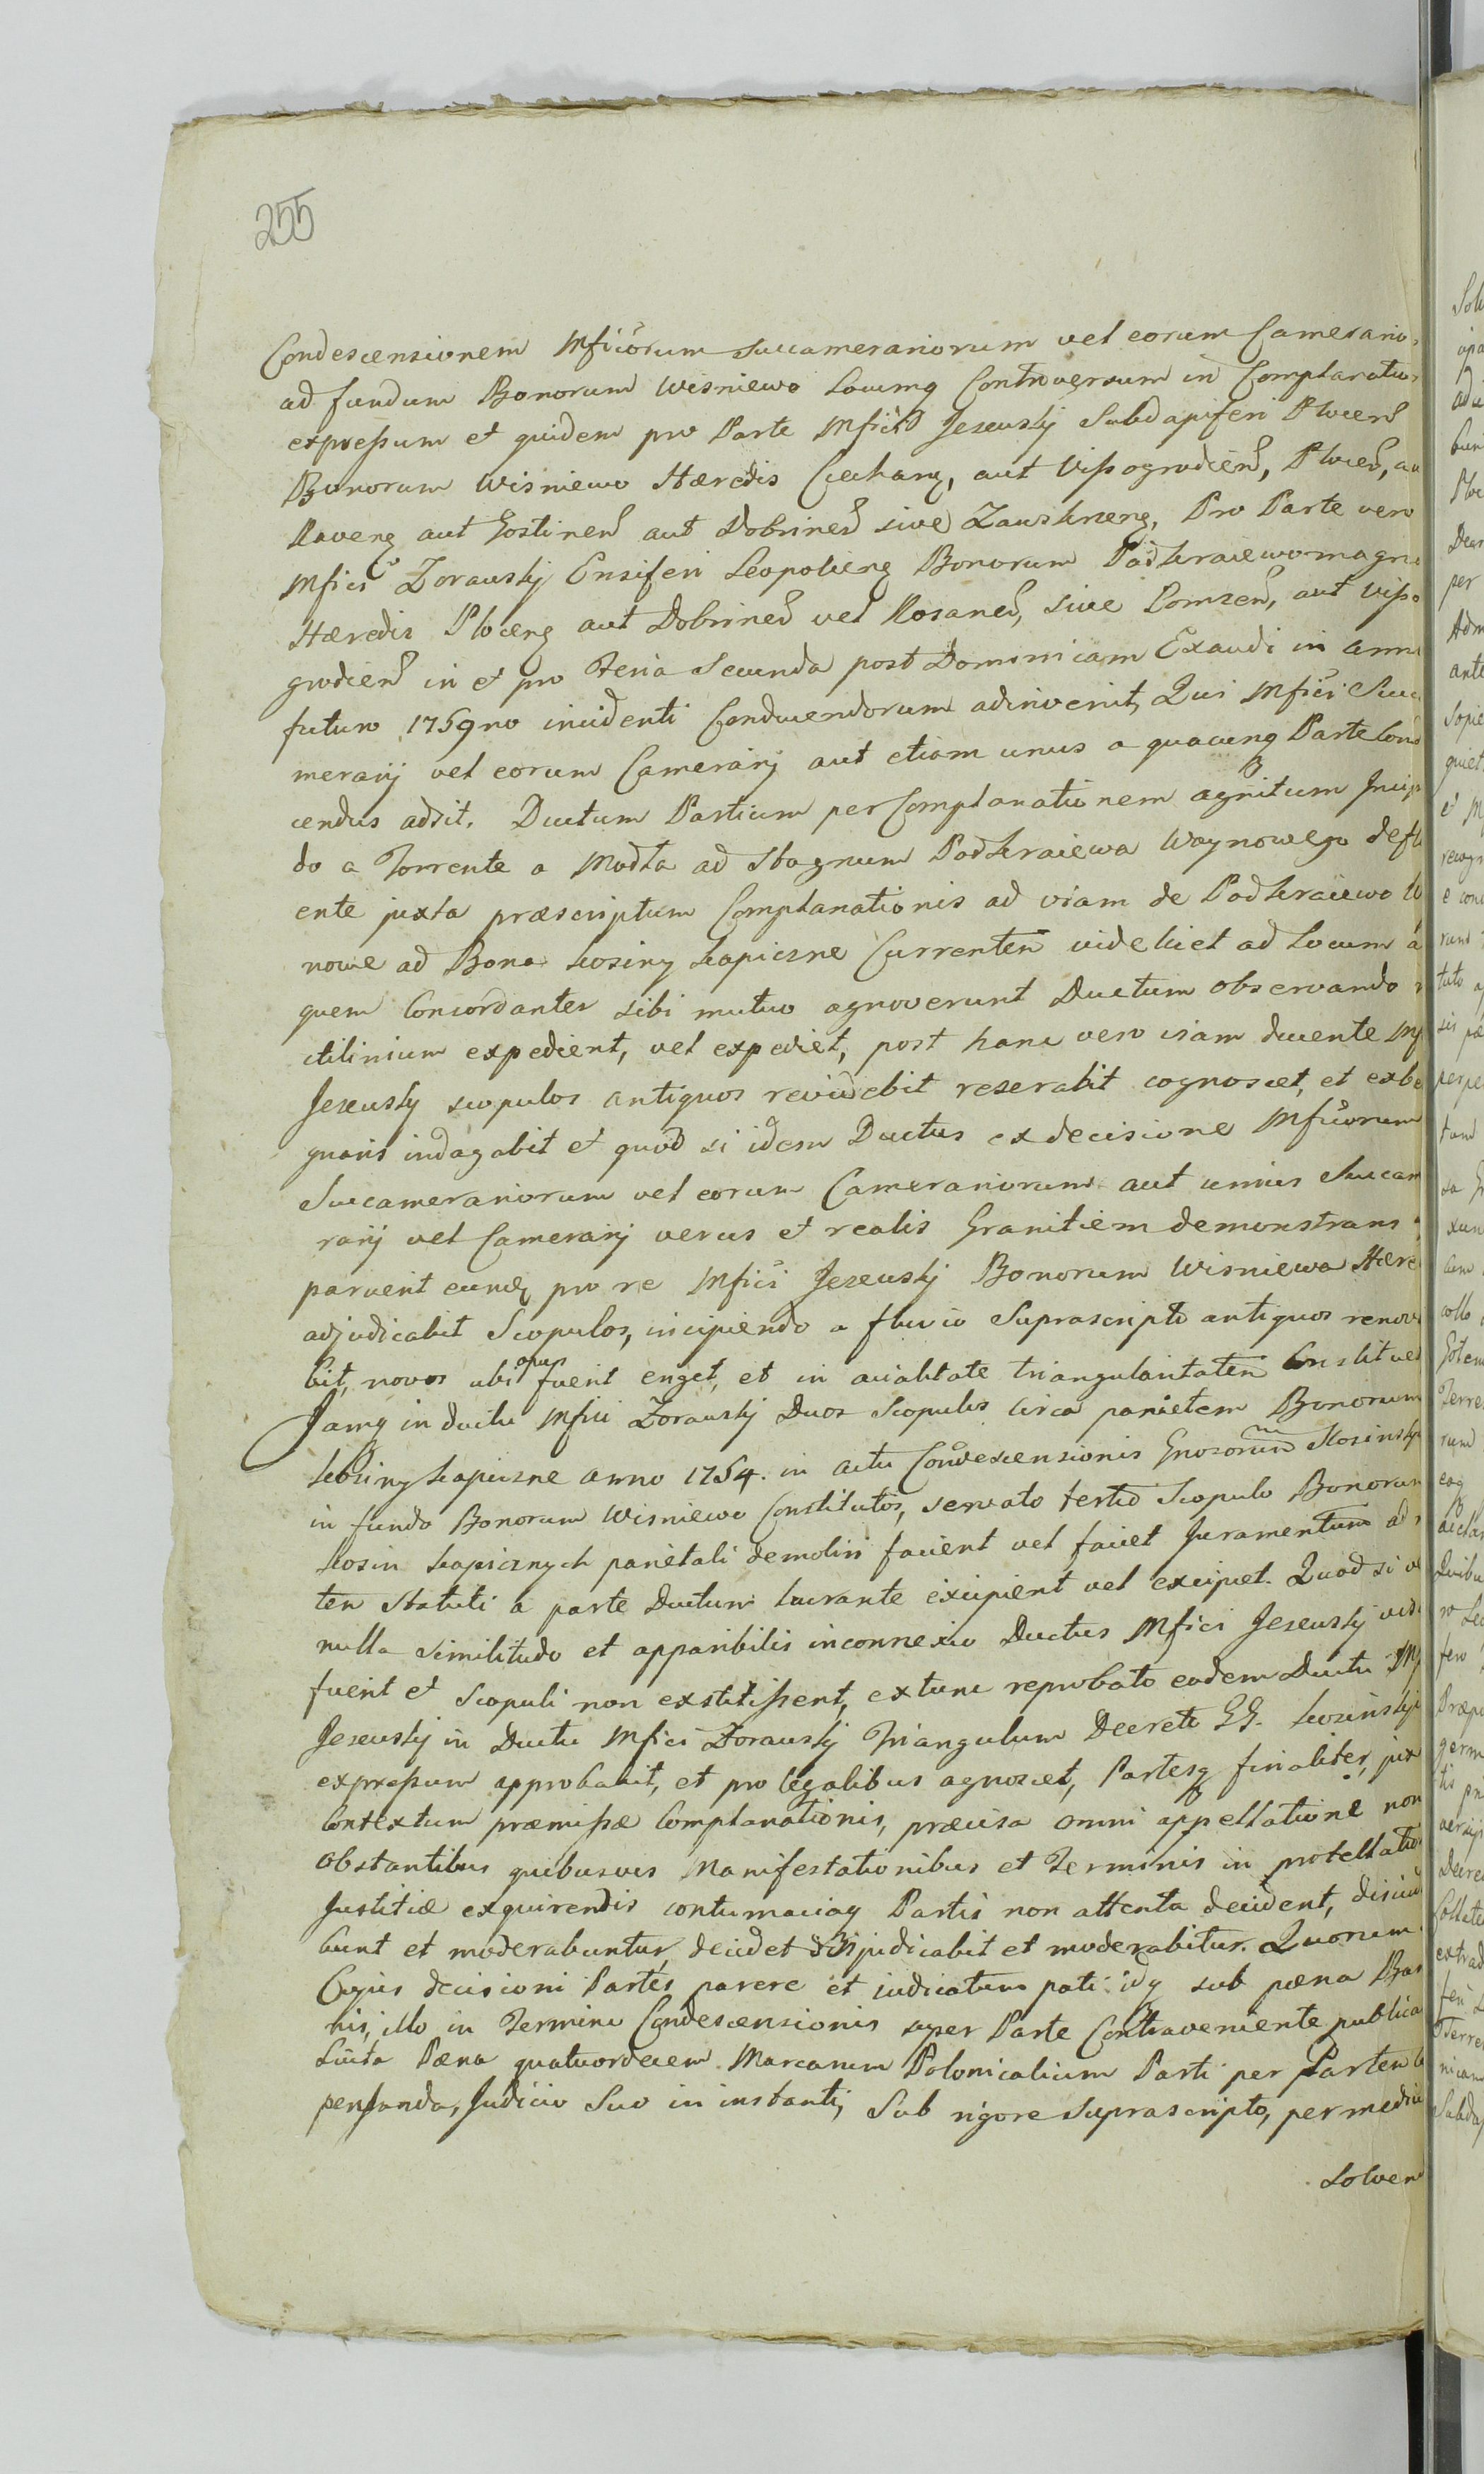 255
Condescensionem Mficorum Succamerariorum vel eorum Camerario
ad fundum Bonorum Wisniewo Locumq Controversum in Complanatio
expressum et quidem pro Parte Mfici Jezewskj Subdapiferi Plocen
Bonorum Wisniewo Hæredis Ciechanq, aut Vissogrodien, Plocen, au
Ravenq aut Gostinen aut Dobrinen sive Zawskrzenq, Pro Parte vero
Mfici Zorawskj Ensiferi Leopoliensq Bonorum Podkraiewo magna
Hæredis Plocenq aut Dobrinen vel Rosanen, sive Lomzen, aut Visso
grodien in et pro Feria Secunda post Dominicam Exaudi in Anno
futuro 1759no incidenti Conducendorum adinvenit, Qui Mfici Succa
merarij vel eorum Camerarij aut etiam unus a quacunq Parte Cond
cendus adsit. Ductum Partium per Complanationem agnitum Incip
do a Torrente a Modła ad Stagnum Podkraiewa Woynowego deflu
ente juxta præscriptum Complanationis ad viam de Podkraiewo W
nowe ad Bona Kosiny Kapiczne Currentem videlicet ad Locum a
quem Concordanter sibi mutuo agnoverunt Ductum observando
ctilinium expedient, vel expediet, post hanc vero viam ducente Mf
Jezewskj scopulos antiquos revidebit reserabit cognoscet, et exbe
gnaris indagabit et quod si idem Ductus ex decisione Mficorum
Succamerariorum vel eorum Camerariorum aut unius Succam
rarij vel Camerarij verus et realis Granitiem demonstrans
paruerit eundq pro re Mfici Jezewskj Bonorum Wisniewa Hære
adjudicabit Scopulos, incipiendo a fluvio Suprascripto antiquos renov
bit, novos ubi opus fuerit eriget, et in acialitate triangularitatem Constituet
Jamq in ductu Mfici Zorawskj Duos Scopulos circa parietem Bonorum
Kosiny Kapiczne Anno 1754. in actu Condescensionis Gnosorum Kosinskj
in fundo Bonorum Wisniewo Constitutos, servato tertio Scopulo Bonorum
Kosin Kapicznych parietali demoliri facient vel faciet Juramentum ad
ten Statuti a parte Ductum lucrante excipient vel excipiet. Quod si ve
nulla similitudo et apparibilis inconnexio Ductus Mfici Jezewskj vide
fuerit et Scopuli non exstitissent, extunc reprobato eodem Ductu Mf
Jezewskj in Ductu Mfici Zorawskj Triangulum Decreto GG. Kosinskj
expressum approbabit, et pro legalibus agnoscet, Partesq finaliter, jux
Contextum præmissæ Complanationis, præcisa omni appellatione non
Obstantibus quibusvis Manifestationibus et Terminis in protellatio
Justitiæ exquirendis contumaciaq Partis non attenta decident, dijud
bunt et moderabuntur, decidet dijudicabit et moderabitur. Quorum
Cujus decisioni Partes parere et judicatum pati idq sub pœna Ban
nis, illo in Termino Condescensionis super Parte Contraveniente publica
Luita Pœna quatuordecem Marcarum Polonicalium Parti per Partem
pensanda, Judicio Suo in instanti, Sub rigore suprascripto, per mediu
Solven